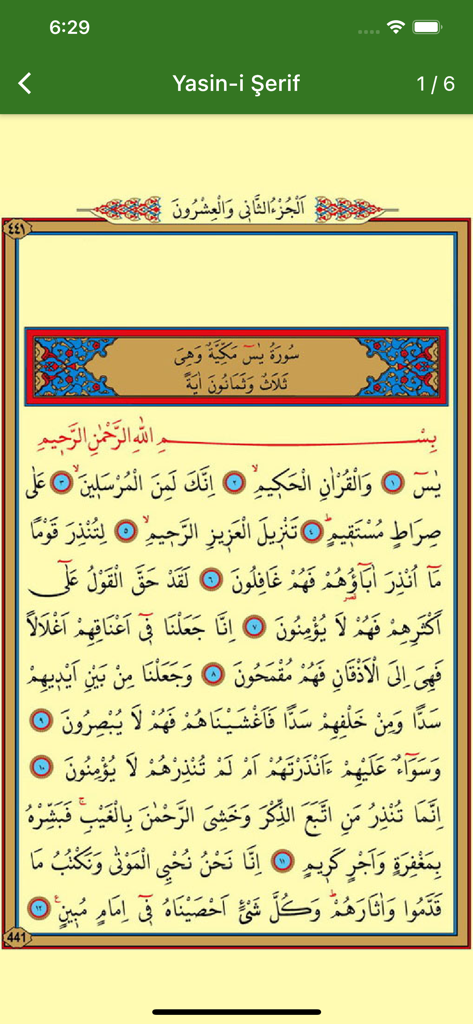 6:29
Yasin-i Şerif
1 / 6
اَلْجُزْءُ الثَّانٖى وَالْعِشْرُونَ
٤٤١
سُورَةُ يٰسٓ مَكِّيَّةٌ وَهِىَ
ثَلَاثٌ وَثَمَانُونَ اٰيَةً
بِسْمِ اللّٰهِ الرَّحْمٰنِ الرَّحٖيمِ
يٰسٓ ﴿١﴾ وَالْقُرْاٰنِ الْحَكٖيمِۙ ﴿٢﴾ اِنَّكَ لَمِنَ الْمُرْسَلٖينَۙ ﴿٣﴾ عَلٰى
صِرَاطٍ مُسْتَقٖيمٍؕ ﴿٤﴾ تَنْزٖيلَ الْعَزٖيزِ الرَّحٖيمِۙ ﴿٥﴾ لِتُنْذِرَ قَوْمًا
مَٓا اُنْذِرَ اٰبَٓاؤُ۬هُمْ فَهُمْ غَافِلُونَ ﴿٦﴾ لَقَدْ حَقَّ الْقَوْلُ عَلٰٓى
اَكْثَرِهِمْ فَهُمْ لَا يُؤْمِنُونَ ﴿٧﴾ اِنَّا جَعَلْنَا فٖٓى اَعْنَاقِهِمْ اَغْلَالًا
فَهِىَ اِلَى الْاَذْقَانِ فَهُمْ مُقْمَحُونَ ﴿٨﴾ وَجَعَلْنَا مِنْ بَيْنِ اَيْدٖيهِمْ
سَدًّا وَمِنْ خَلْفِهِمْ سَدًّا فَاَغْشَيْنَاهُمْ فَهُمْ لَا يُبْصِرُونَ ﴿٩﴾
وَسَوَٓاءٌ عَلَيْهِمْ ءَاَنْذَرْتَهُمْ اَمْ لَمْ تُنْذِرْهُمْ لَا يُؤْمِنُونَ ﴿١٠﴾
اِنَّمَا تُنْذِرُ مَنِ اتَّبَعَ الذِّكْرَ وَخَشِىَ الرَّحْمٰنَ بِالْغَيْبِۚ فَبَشِّرْهُ
بِمَغْفِرَةٍ وَاَجْرٍ كَرٖيمٍ ﴿١١﴾ اِنَّا نَحْنُ نُحْيِ الْمَوْتٰى وَنَكْتُبُ مَا
قَدَّمُوا وَاٰثَارَهُمْؕ وَكُلَّ شَىْءٍ اَحْصَيْنَاهُ فٖٓى اِمَامٍ مُبٖينٍ ﴿١٢﴾
441